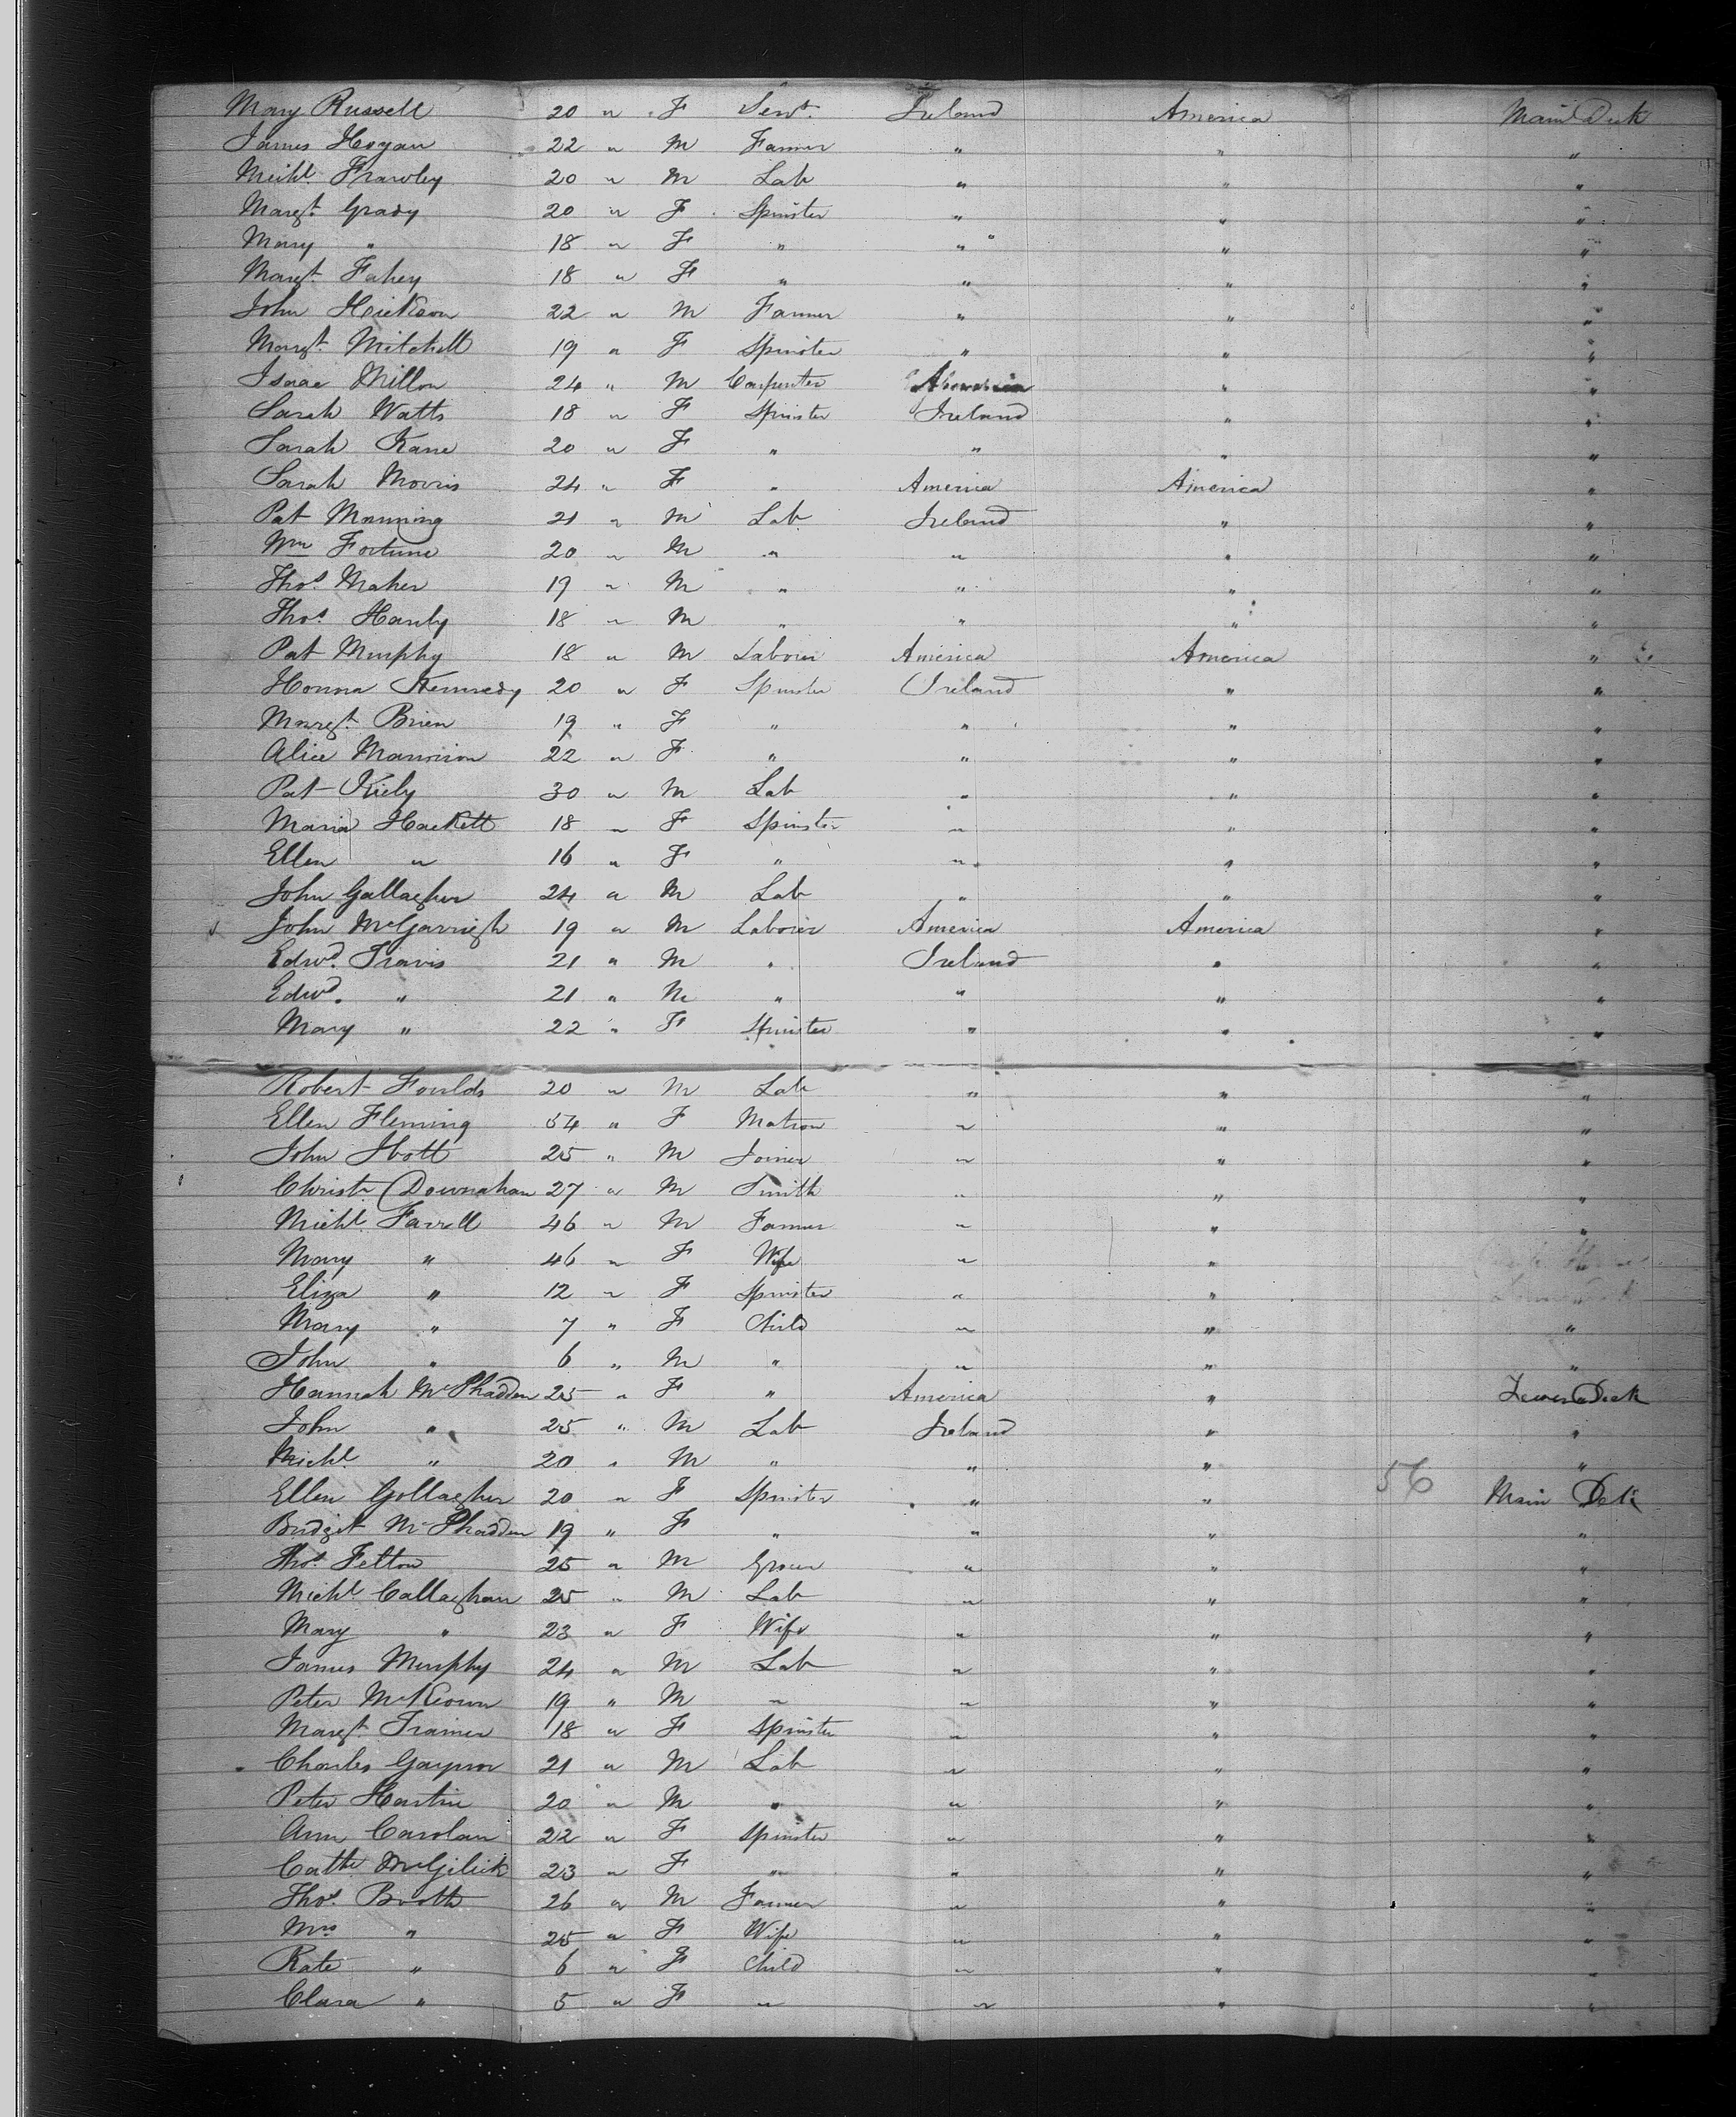 Mary Russell 20 " F Servt. Ireland America Main Deck
James Hogan 22 " M Farmer " " "
Michl. Frawley 20 " M Lab " " "
Margt. Grady 20 " F Spinster " " "
Mary " 18 " F " " " "
Margt. Fahey 18 " F " " " "
John Hickson 22 " M Farmer " " "
Margt. Mitchell 19 " F Spinster " " "
Isaac Millon 24 " M Carpenter America " "
Sarah Watts 18 " F Spinster Ireland " "
Sarah Kane 20 " F " " " "
Sarah Morris 24 " F " America America "
Pat Manning 21 " M Lab Ireland " "
Wm Fortune 20 " M " " " "
Thos. Maher 19 " M " " " "
Thos. Hanly 18 " M " " " "
Pat Murphy 18 " M Labourer America America "
Honna Kennedy 20 " F Spinster Ireland " "
Margt. Brien 19 " F " " " "
Alice Mannion 22 " F " " " "
Pat Kiely 30 " M Lab " " "
Maria Hackett 18 " F Spinster " " "
Ellen " 16 " F " " " "
John Gallagher 24 " M Lab " " "
John McGarrigh 19 " M Labourer America America "
Edwd. Travis 21 " M " Ireland " "
Edwd. " 21 " M " " " "
Mary " 22 " F Spinster " " "
Robert Foulds 20 " M Lab " " "
Ellen Fleming 54 " F Matron " " "
John 25 " M Joiner " " "
Christr Downahan 27 " M Smith " " "
Michl. Farrell 46 " M Farmer " " "
Mary " 46 " F Wife " "
Eliza " 12 " F Spinster " "
Mary " 7 " F Child " " "
John " 6 " M " " " "
Hannah McPhadden 25 " F " America " Lower Deck
John " 25 " M Lab Ireland " "
Michl " 20 " M " " " "
Ellen Gollagher 20 " F Spinster " " 56 Main Deck
Bridget McPhadden 19 " F " " " "
Thos. Felton 25 " M Grocer " " "
Michl Callaghan 25 " M Lab " " "
Mary " 23 " F Wife " " "
James Murphy 24 " M Lab " " "
Peter McKeown 19 " M " " " "
Margt. Trainer 18 " F Spinster " " "
Charles Gaynor 21 " M Lab " " "
Peter Hartin 20 " M " " " "
Ann Carolan 22 " F Spinster " " "
Cathe McGilick 23 " F " " " "
Thos. Booth 26 " M Farmer " " "
Mrs " 25 " F Wife " " "
Kate " 6 " F Child " " "
Clara " 5 " F " " " "